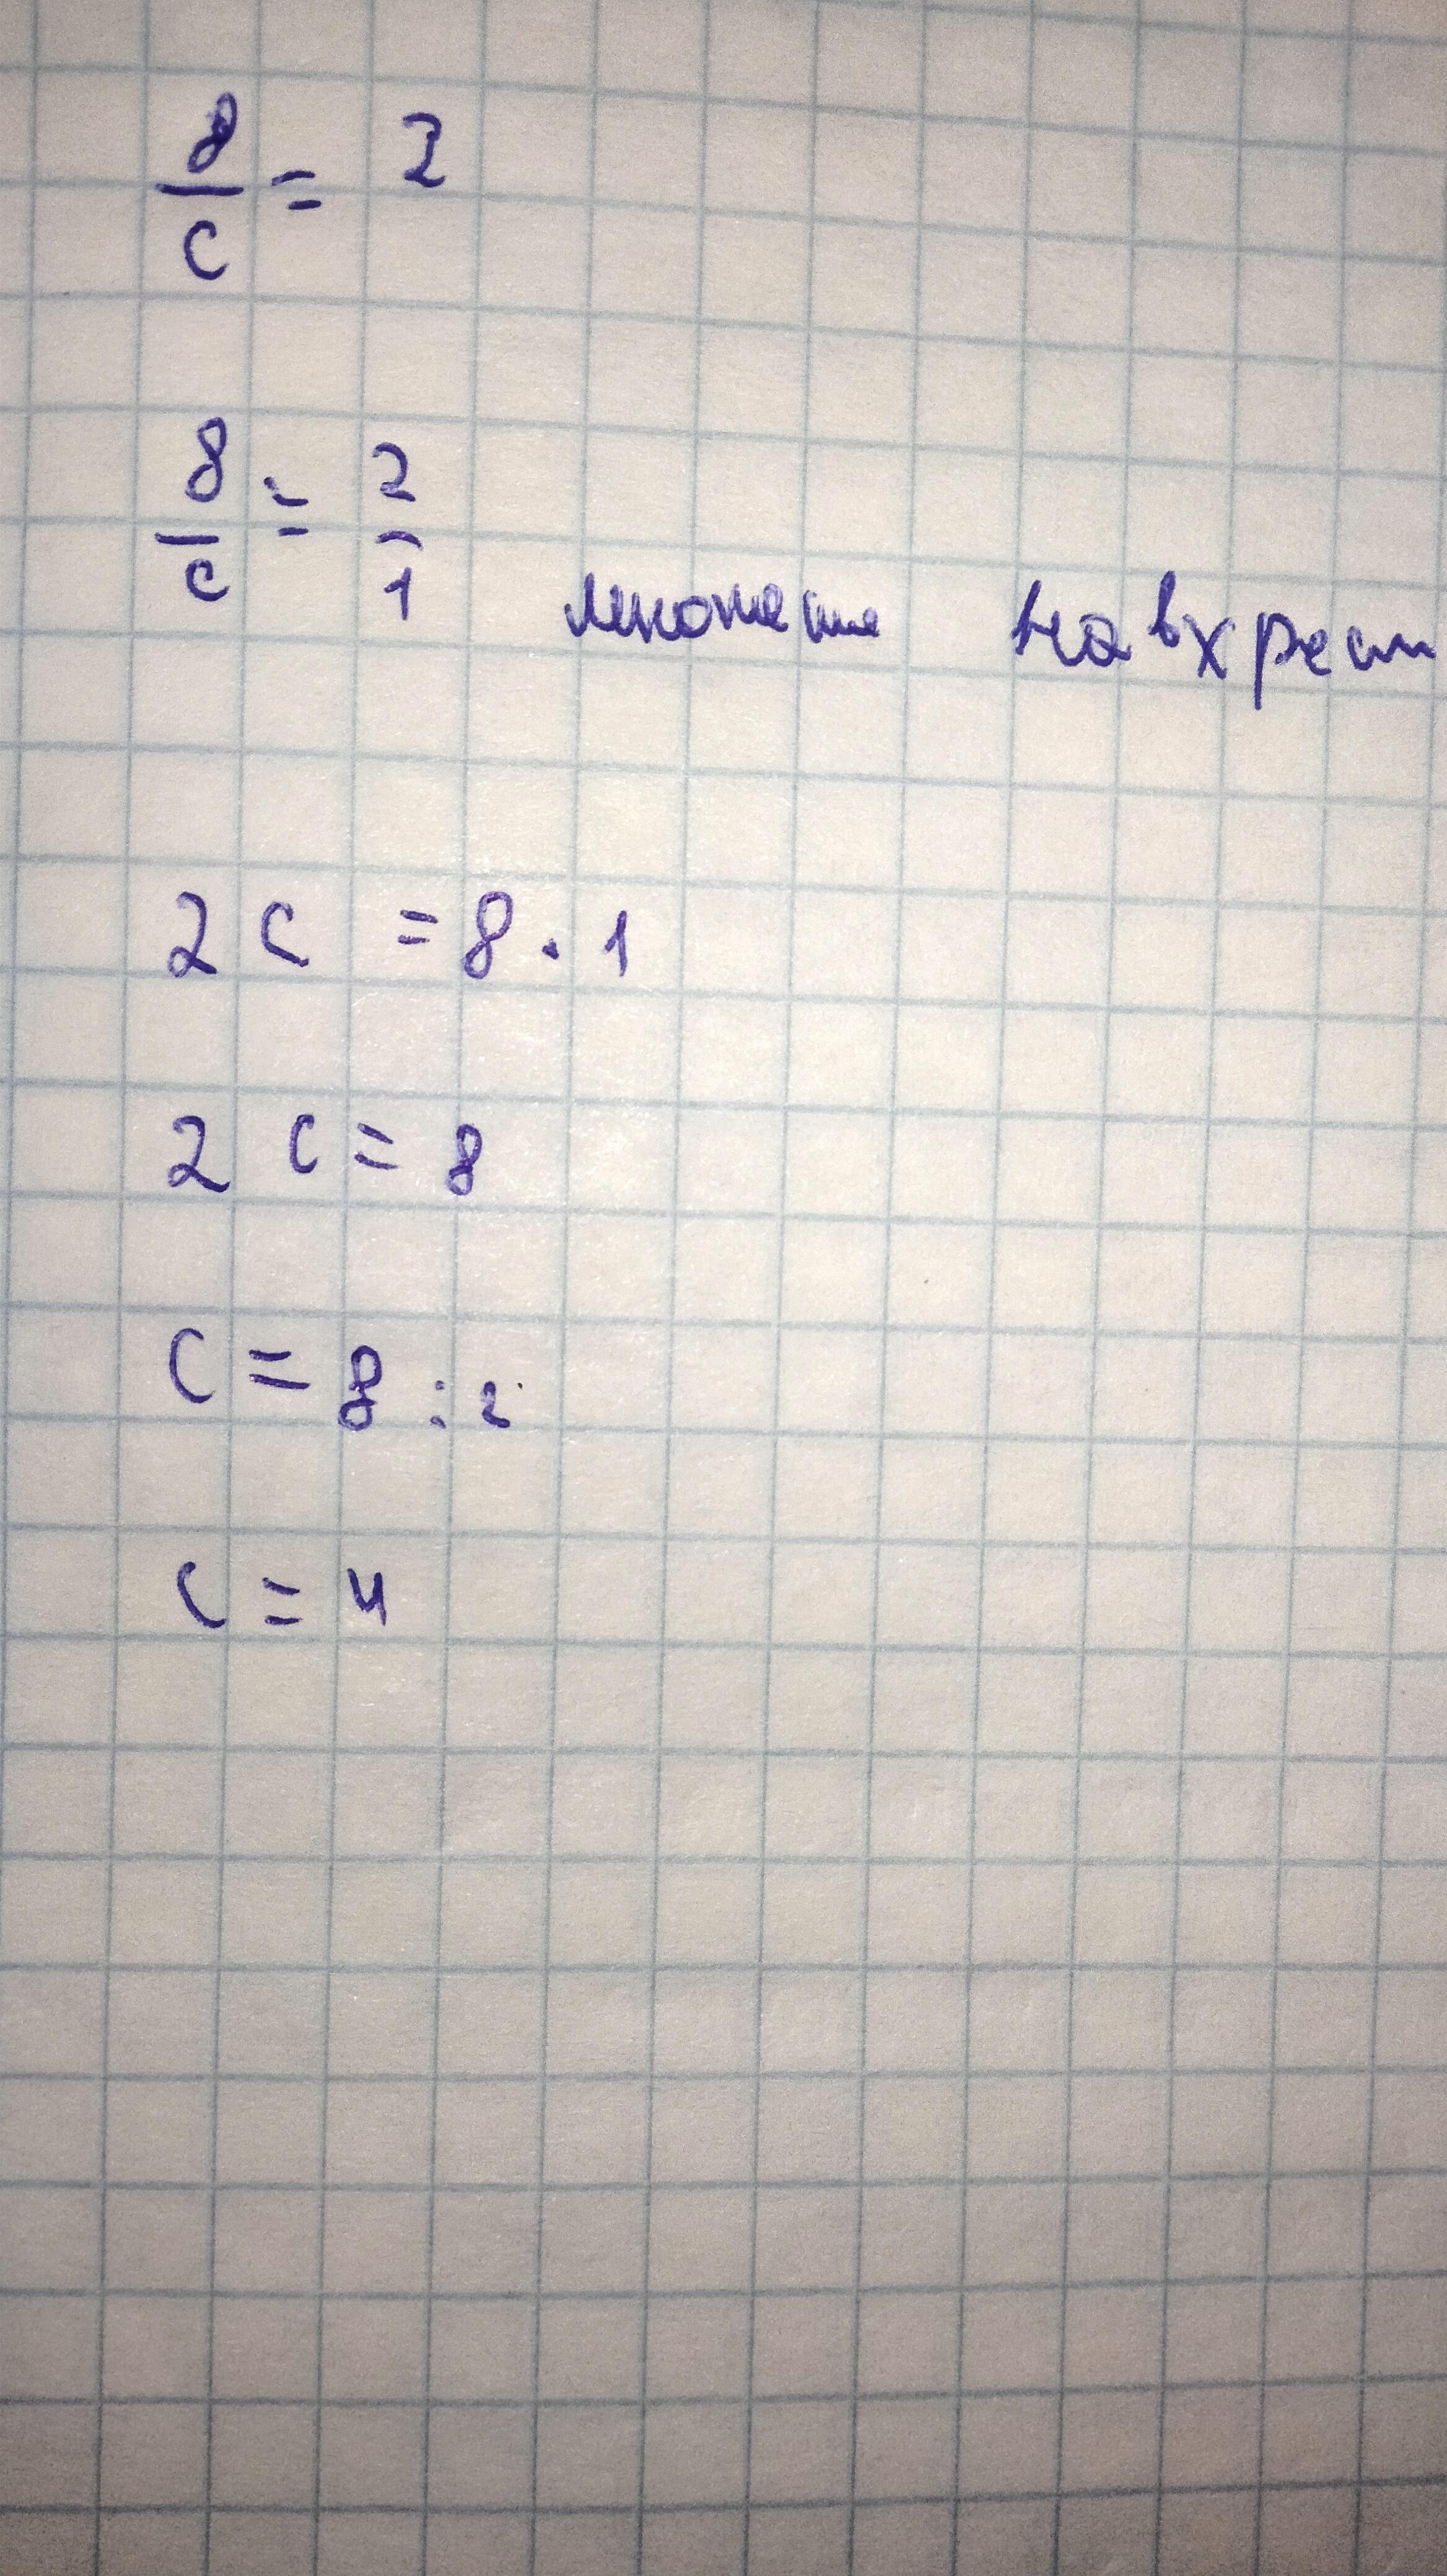 8/c = 2
8/c = 2/1 множете навхрест
2c = 8 · 1
2c = 8
c = 8 : 2
c = 4